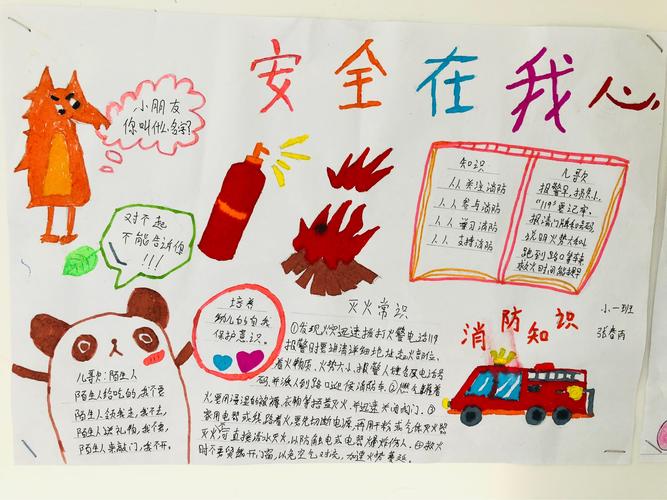 安全在我心
小朋友
你叫什么名字?
对不起
不能告诉你
!!!
知识
人人关注消防
人人参与消防
人人学习消防
人人支持消防
儿歌
报警早,损失小,
"119"要记牢,
报清门牌和号码,
说明火势大和小
跑到路口等车来
救火时间能提早
小一班
培养
幼儿的自我
保护意识。
灭火常识
①发现火灾迅速拨打火警电话119
报警时要讲清详细地址起火部位、
着火物质、火势大小、报警人姓名及电话号
码,并派人到路口迎候消防车。②燃气罐着
火要用浸湿的被褥、衣物等捂盖灭火,并迅速关闭阀门。③
家用电器或线路着火,要先切断电源,再用干粉或气体灭火器
灭火,可直接泼水灭火,以防触电或电器爆炸伤人。④救火
时不要贸然开门窗,以免空气对流,加速火势蔓延。
消防知识
儿歌:陌生人
陌生人给吃的,我不要
陌生人领我走,我不去,
陌生人送礼物,我不要,
陌生人来敲门,我不开。